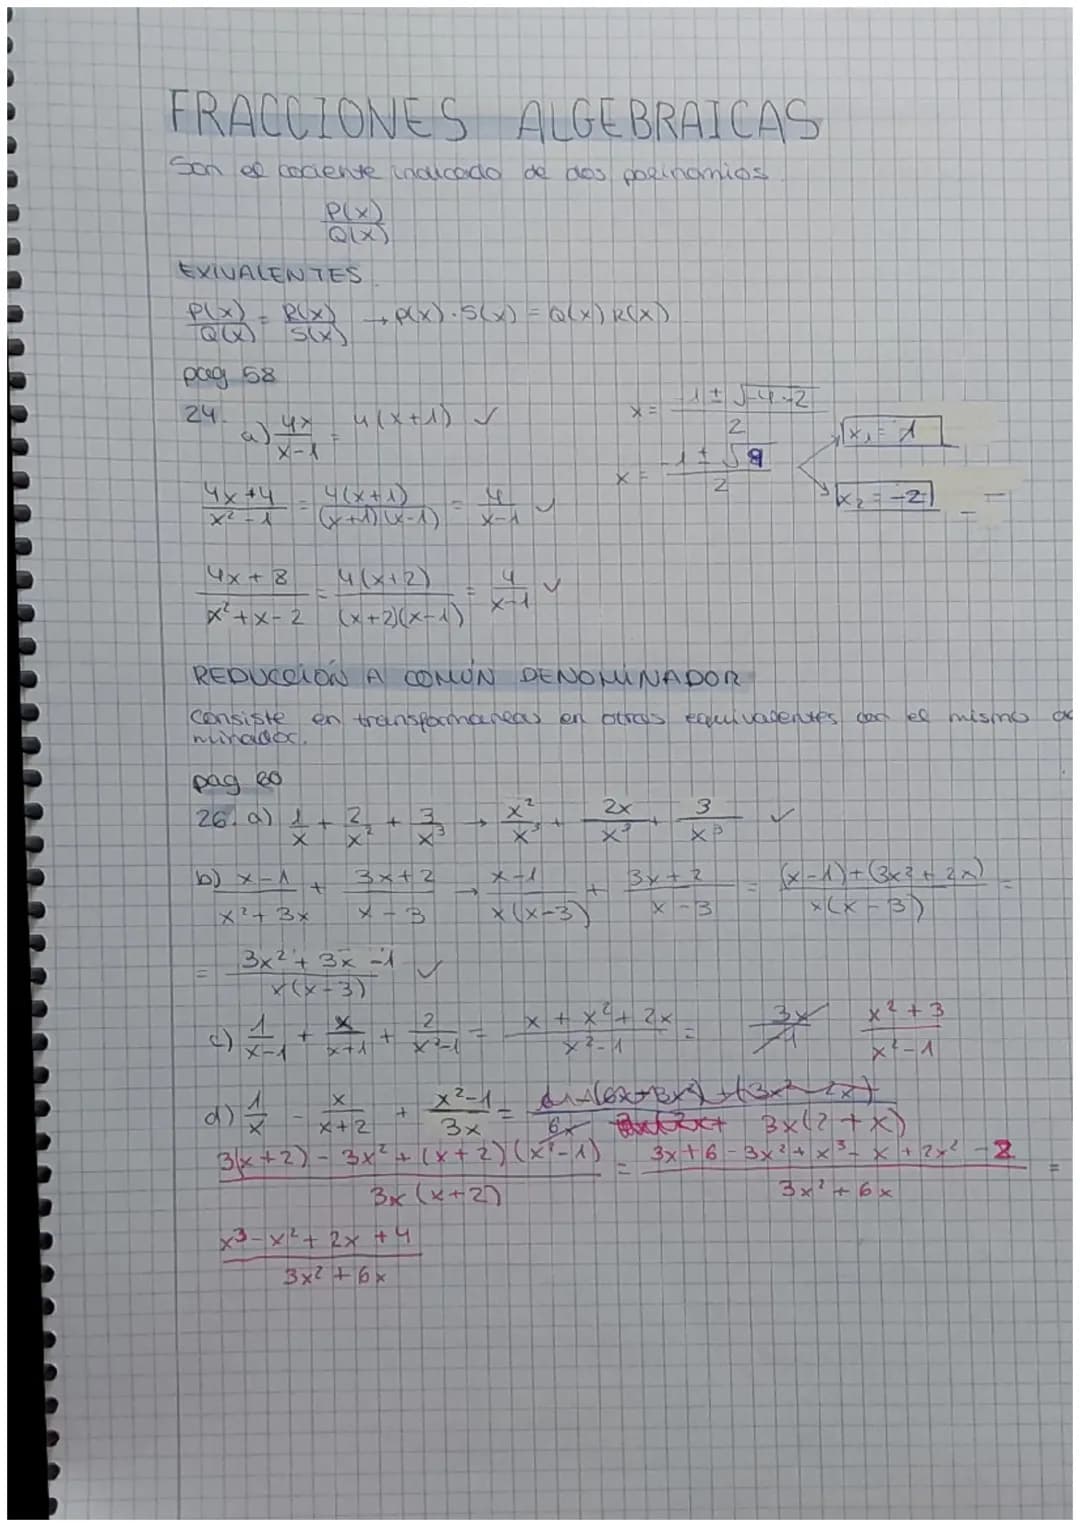 FRACCIONES ALGEBRAICAS
Son el cociente indicado de dos polinomios.
P(x)/Q(x)
EXIVALENTES
P(x)/Q(x) = R(x)/S(x) → P(x)·S(x) = Q(x)R(x)
pag 58
24. a) 4x/x-1 = 4(x+1) ✓
x = -1±√-4·-2/2
x = -1±√9/2
x₁ = 1
x₂ = -2
4x+4/x²-1 = 4(x+1)/(x+1)(x-1) = 4/x-1 ✓
4x+8/x²+x-2 = 4(x+2)/(x+2)(x-1) = 4/x-1 ✓
REDUCCIÓN A COMÚN DENOMINADOR
Consiste en transformarlas en otras equivalentes con el mismo
minador.
pag 60
26. a) 1/x + 2/x² + 3/x³ → x²/x³ + 2x/x³ + 3/x³ ✓
b) x-1/x²+3x + 3x+2/x-3 → x-1/x(x-3) + 3x+2/x-3 = (x-1)+(3x²+2x)/x(x-3) =
= 3x²+3x-1/x(x-3) ✓
c) 1/x-1 + x/x+1 + 2/x²-1 = x+x²+2x/x²-1 = 3x/-1 x²+3/x²-1
d) 1/x - x/x+2 + x²-1/3x = 3x(2+x)
3(x+2)-3x²+(x+2)(x²-1)/3x(x+2) = 3x+6-3x²+x³-x+2x²-2/3x²+6x =
x³-x²+2x+4/3x²+6x